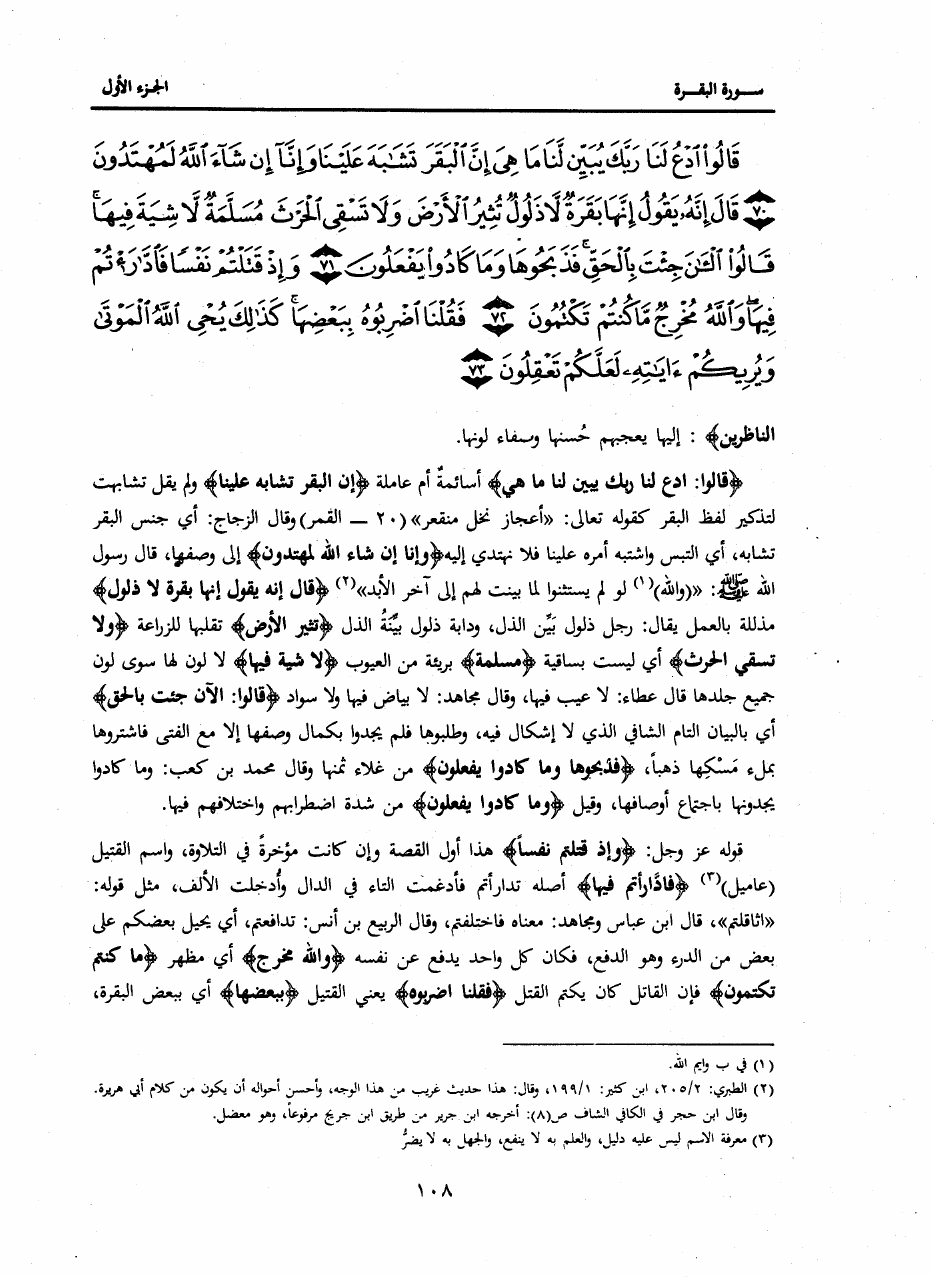 سورة البقرة
الجزء الأول
قَالُوا۟ ٱدْعُ لَنَا رَبَّكَ يُبَيِّن لَّنَا مَا هِىَ إِنَّ ٱلْبَقَرَ تَشَـٰبَهَ عَلَيْنَا وَإِنَّآ إِن شَآءَ ٱللَّهُ لَمُهْتَدُونَ
﴿٧٠﴾ قَالَ إِنَّهُۥ يَقُولُ إِنَّهَا بَقَرَةٌ لَّا ذَلُولٌ تُثِيرُ ٱلْأَرْضَ وَلَا تَسْقِى ٱلْحَرْثَ مُسَلَّمَةٌ لَّا شِيَةَ فِيهَا ۚ
قَالُوا۟ ٱلْـَٔـٰنَ جِئْتَ بِٱلْحَقِّ ۚ فَذَبَحُوهَا وَمَا كَادُوا۟ يَفْعَلُونَ ﴿٧١﴾ وَإِذْ قَتَلْتُمْ نَفْسًا فَٱدَّٰرَْٰٔتُمْ
فِيهَا ۖ وَٱللَّهُ مُخْرِجٌ مَّا كُنتُمْ تَكْتُمُونَ ﴿٧٢﴾ فَقُلْنَا ٱضْرِبُوهُ بِبَعْضِهَا ۚ كَذَٰلِكَ يُحْىِ ٱللَّهُ ٱلْمَوْتَىٰ
وَيُرِيكُمْ ءَايَـٰتِهِۦ لَعَلَّكُمْ تَعْقِلُونَ ﴿٧٣﴾
الناظرين﴾ : إليها يعجبهم حُسنها وصفاء لونها.
﴿قالوا: ادع لنا ربك يبين لنا ما هي﴾ أسائمةٌ أم عاملة ﴿إن البقر تشابه علينا﴾ ولم يقل تشابهت
لتذكير لفظ البقر كقوله تعالى: «أعجاز نخل منقعر» (٢٠ ـ القمر) وقال الزجاج: أي جنس البقر
تشابه، أي التبس واشتبه أمره علينا فلا نهتدي إليه ﴿وإنا إن شاء الله لمهتدون﴾ إلى وصفها، قال رسول
الله ﷺ: «(والله)(١) لو لم يستثنوا لما بينت لهم إلى آخر الأبد»(٢) ﴿قال إنه يقول إنها بقرة لا ذلول﴾
مذللة بالعمل يقال: رجل ذلول بَيِّن الذل، ودابة ذلول بيِّنَةُ الذل ﴿تثير الأرض﴾ تقلبها للزراعة ﴿ولا
تسقي الحرث﴾ أي ليست بساقية ﴿مسلمة﴾ بريئة من العيوب ﴿لا شية فيها﴾ لا لون لها سوى لون
جميع جلدها قال عطاء: لا عيب فيها، وقال مجاهد: لا بياض فيها ولا سواد ﴿قالوا: الآن جئت بالحق﴾
أي بالبيان التام الشافي الذي لا إشكال فيه، وطلبوها فلم يجدوا بكمال وصفها إلا مع الفتى فاشتروها
بملء مَسْكِها ذهباً، ﴿فذبحوها وما كادوا يفعلون﴾ من غلاء ثمنها وقال محمد بن كعب: وما كادوا
يجدونها باجتماع أوصافها، وقيل ﴿وما كادوا يفعلون﴾ من شدة اضطرابهم واختلافهم فيها.
قوله عز وجل: ﴿وإذ قتلتم نفساً﴾ هذا أول القصة وإن كانت مؤخرةً في التلاوة، واسم القتيل
(عاميل)(٣) ﴿فادَّارأتم فيها﴾ أصله تدارأتم فأدغمت التاء في الدال وأُدخلت الألف، مثل قوله:
«اثاقلتم»، قال ابن عباس ومجاهد: معناه فاختلفتم، وقال الربيع بن أنس: تدافعتم، أي يحيل بعضكم على
بعض من الدرء وهو الدفع، فكان كل واحد يدفع عن نفسه ﴿والله مخرج﴾ أي مظهر ﴿ما كنتم
تكتمون﴾ فإن القاتل كان يكتم القتل ﴿فقلنا اضربوه﴾ يعني القتيل ﴿ببعضها﴾ أي ببعض البقرة،
(١) في ب وايم الله.
(٢) الطبري: ٢٠٥/٢، ابن كثير: ١٩٩/١، وقال: هذا حديث غريب من هذا الوجه، وأحسن أحواله أن يكون من كلام أبي هريرة.
وقال ابن حجر في الكافي الشاف ص(٨): أخرجه ابن جرير من طريق ابن جريج مرفوعاً، وهو معضل.
(٣) معرفة الاسم ليس عليه دليل، والعلم به لا ينفع، والجهل به لا يضرُّ
١٠٨